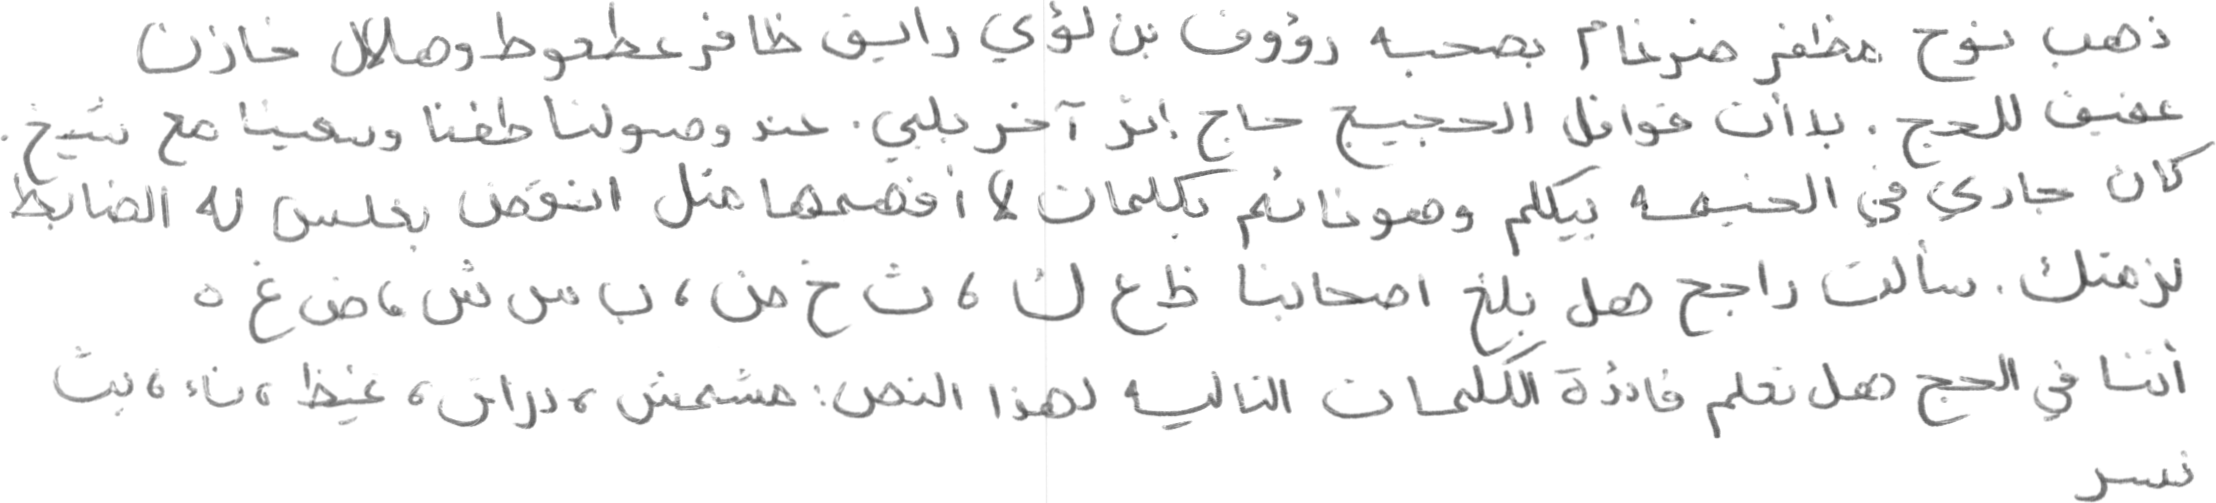 ذهب نوح مظفر ضرغام بصحبه رؤوف بن لؤي رايق ظافر عطعوط وهلال خازن
عفيف للحج . بدأت قوافل الحجيج حاج إثر آخر بلبي . عند وصولنا طفنا وسعينا مع شيخ .
كان جاري في الخيمه يتكلم وهو نائم بكلمات لا أفهمها مثل انتوقض بخلس له الضابط
لزمتك . سألت راجح هل بلغ اصحابنا ظ ع ك ، ث خ ض ، ب س ش ، ض غ ه
أننا في الحج هل تعلم فائدة الكلمات التاليه لهذا النص : مشمش ، دراق ، غيظ ، ناء ، بث
نسر